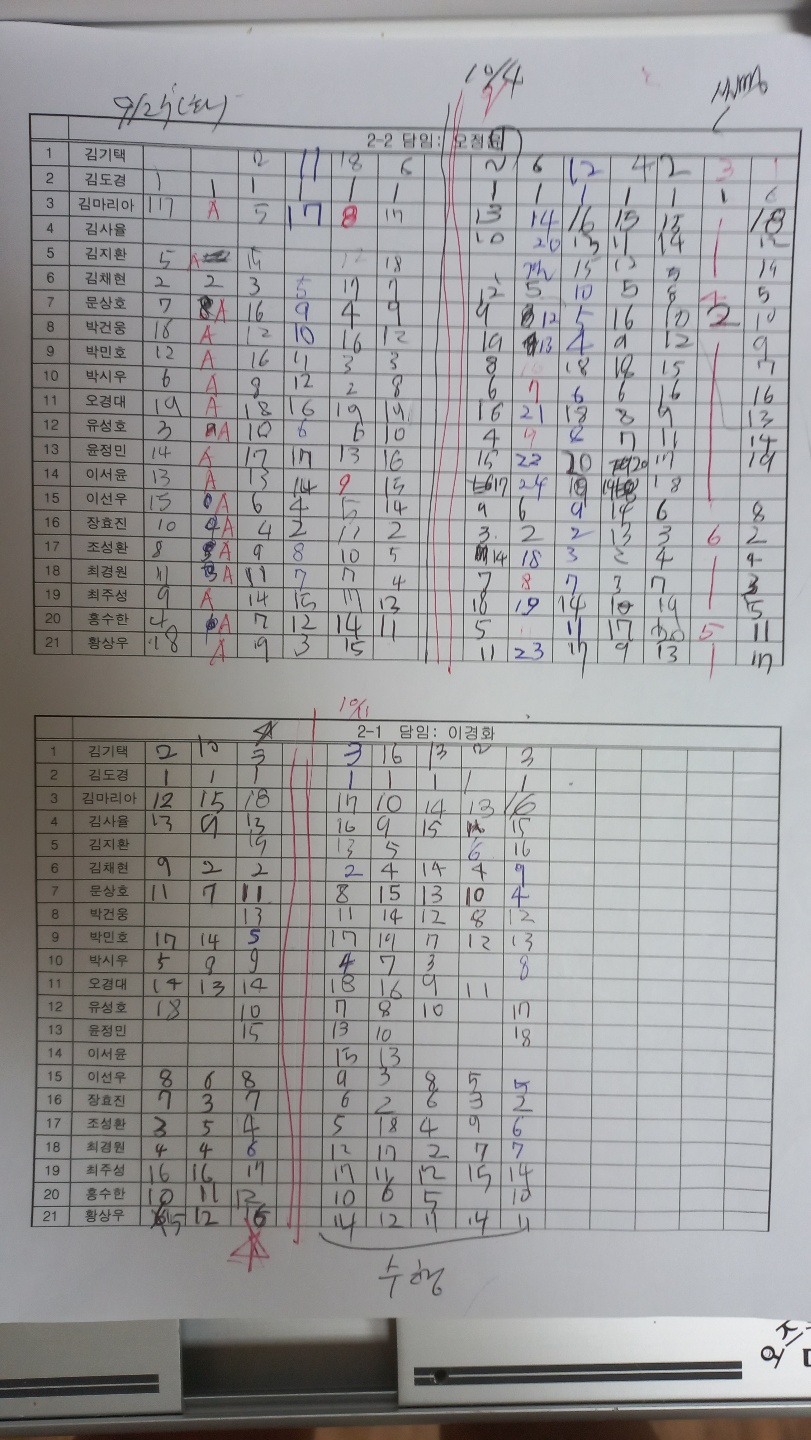 10/4
2-2 담임: 오정
1 김기택 11 18 6 6 12 4 2 3
2 김도경 1 1 1 1 1 1 1 1 1 1 1 1
3 김마리아 117 A 5 17 8 17 13 14 16 15 15 18
4 김사율 10 20 13 11 14
5 김지환 5 A 18 15 12 9 14
6 김채현 2 2 3 5 17 7 12 5 10 5 8 5
7 문상호 7 A 16 9 4 9 9 12 5 16 10 2 10
8 박건웅 18 A 12 10 16 12 19 13 4 9 12 9
9 박민호 12 A 16 11 3 3 8 18 18 15 7
10 박시우 6 A 8 12 2 8 6 7 6 6 16 16
11 오경대 19 A 18 16 19 19 16 21 18 8 9 13
12 유성호 3 A 10 6 6 10 4 9 8 7 11 14
13 윤정민 14 A 17 17 13 16 15 22 20 20 17 19
14 이서윤 13 A 13 14 9 15 17 24 19 18
15 이선우 15 A 6 4 15 14 9 6 9 14 6 8
16 장효진 10 A 4 2 11 2 3 2 2 13 3 6 2
17 조성환 8 A 9 8 10 5 14 18 3 2 4 4
18 최경원 11 A 11 7 17 4 7 8 7 3 7 3
19 최주성 9 A 14 15 11 13 18 19 14 10 19 5
20 홍수한 4 A 7 12 14 11 5 11 17 5 11
21 황상우 18 A 19 3 15 11 23 17 9 13 17
10/11
2-1 담임: 이경화
1 김기택 2 10 3 3 16 13 2 3
2 김도경 1 1 1 1 1 1 1 1
3 김마리아 12 15 18 17 10 14 13 16
4 김사율 13 9 13 16 9 15 15
5 김지환 19 13 5 6 16
6 김채현 9 2 2 2 4 14 4 9
7 문상호 11 7 11 8 15 13 10 4
8 박건웅 13 11 14 12 8 12
9 박민호 17 14 5 17 19 17 12 13
10 박시우 5 9 9 4 7 3 8
11 오경대 14 13 14 18 16 9 11
12 유성호 18 10 7 8 10 17
13 윤정민 15 13 10 18
14 이서윤 15 13
15 이선우 8 6 8 9 3 8 5 5
16 장효진 7 3 7 6 2 6 3 2
17 조성환 3 5 4 5 18 4 9 6
18 최경원 4 4 6 12 17 2 7 7
19 최주성 16 16 17 17 11 12 15 14
20 홍수한 10 11 12 10 6 5 10
21 황상우 15 12 16 14 12 11 14 11
수행